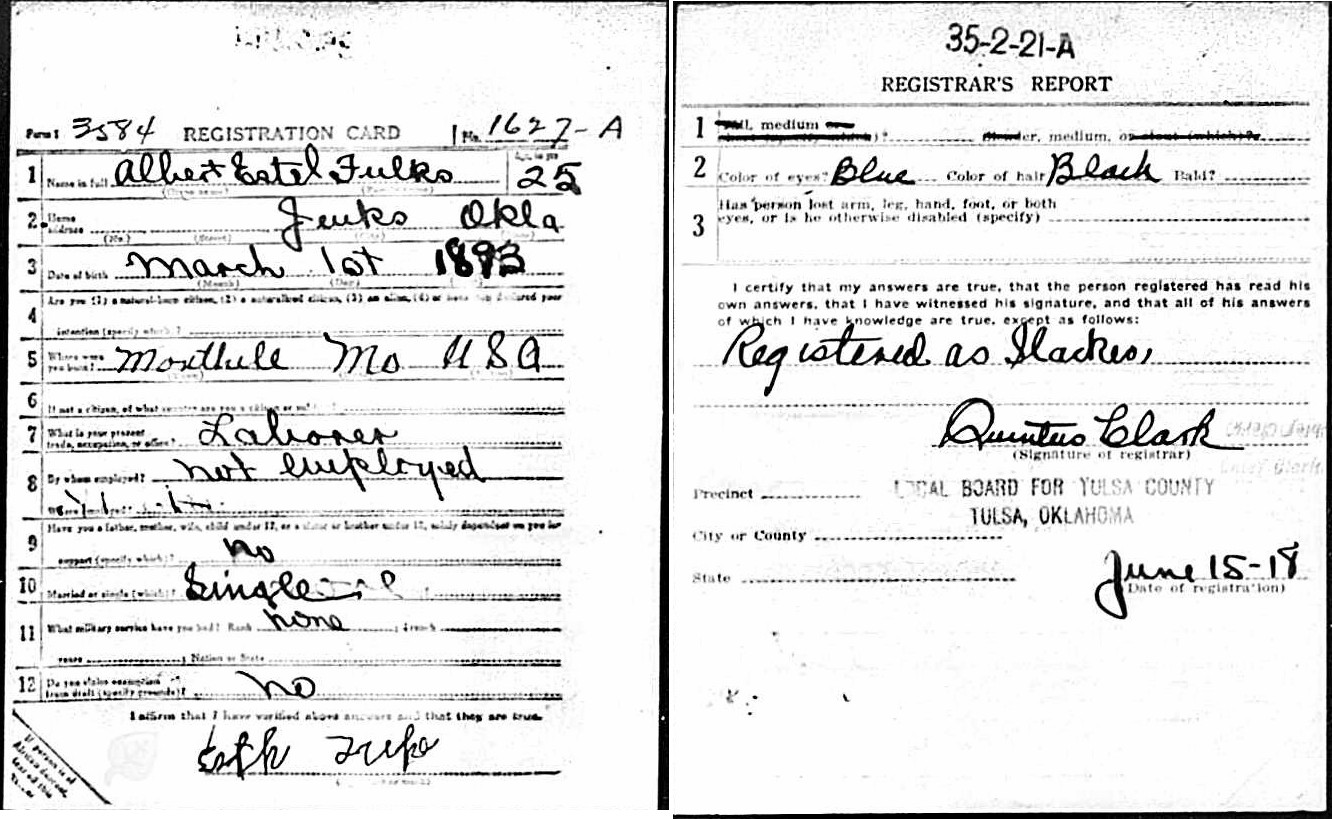 Form 1 3584 REGISTRATION CARD No. 1627-A
1 Name in full Albert Estel Fulks 25
(Given name) (Family name)
2 Home address Jenks Okla
(No.) (Street) (City) (State)
3 Date of birth March 1st 1893
(Month) (Day)
4 Are you (1) a natural-born citizen, (2) a naturalized citizen, (3) an alien, (4) or have you declared your
intention (specify which)?
5 Where were you born? Mo U S A
6 If not a citizen, of what country are you a citizen or
7 What is your present trade, occupation, or office? Laborer
8 By whom employed? not employed
9 Have you a father, mother, wife, child under 12, or a sister or brother under 12, solely dependent on you for
support (specify which)? no
10 Married or single (which)? Single
11 What military service have you had? Rank none ; branch
years ; Nation or State
12 Do you claim exemption from draft (specify grounds)? no
I affirm that I have verified above answers and that they are true.
If person is of African descent,
35-2-21-A
REGISTRAR'S REPORT
1 Tall, medium
er, medium, or stout (which)?
2 Color of eyes? Blue Color of hair Black Bald?
3 Has person lost arm, leg, hand, foot, or both
eyes, or is he otherwise disabled (specify)
I certify that my answers are true, that the person registered has read his
own answers, that I have witnessed his signature, and that all of his answers
of which I have knowledge are true, except as follows:
Registered as Slacker,
Quintus Clark
(Signature of registrar)
Precinct LOCAL BOARD FOR TULSA COUNTY
TULSA, OKLAHOMA
City or County
State June 15-18
(Date of registration)